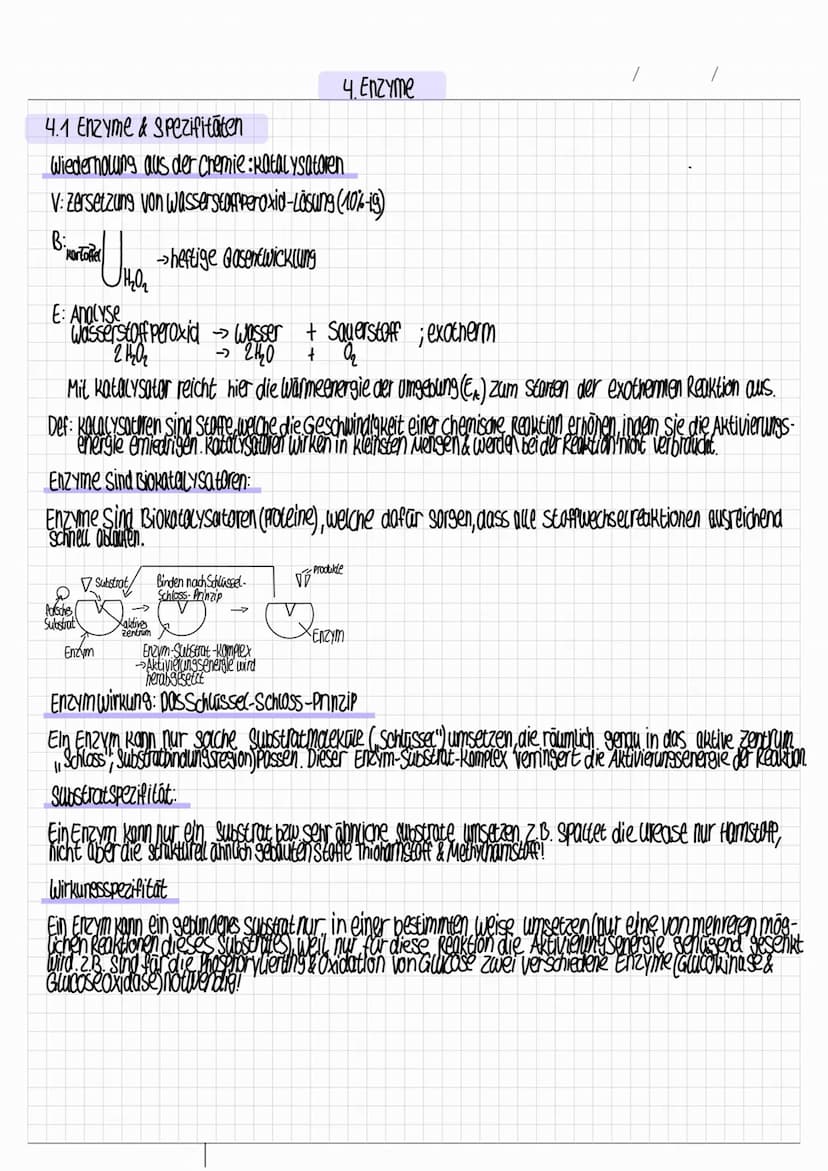 / /
4. Enzyme
4.1 Enzyme & Spezifitäten
Wiederholung aus der Chemie: Katalysatoren
V: Zersetzung von Wasserstoffperoxid-Lösung (10%-ig)
B: Kartoffel H₂O₂ → heftige Gasentwicklung
E: Analyse
Wasserstoffperoxid → Wasser + Sauerstoff ; exotherm
2 H₂O₂ → 2 H₂O + O₂
Mit Katalysator reicht hier die Wärmeenergie der Umgebung (E_A) zum Starten der exothermen Reaktion aus.
Def: Katalysatoren sind Stoffe, welche die Geschwindigkeit einer chemische Reaktion erhöhen, indem sie die Aktivierungs-
energie erniedrigen. Katalysatoren wirken in kleinsten Mengen & werden bei der Reaktion nicht verbraucht.
Enzyme sind Biokatalysatoren:
Enzyme sind Biokatalysatoren (Proteine), welche dafür sorgen, dass alle Stoffwechselreaktionen ausreichend
schnell ablaufen.
Produkte
Substrat
Binden nach Schlüssel-
Schloss-Prinzip
Falsches
Substrat
aktives
Zentrum
→
→
Enzym
Enzym
Enzym-Substrat-Komplex
→ Aktivierungsenergie wird
herabgesetzt
Enzymwirkung: Das Schlüssel-Schloss-Prinzip
Ein Enzym kann nur solche Substratmoleküle („Schlüssel") umsetzen, die räumlich genau in das aktive Zentrum
„Schloss", Substratbindungsregion) passen. Dieser Enzym-Substrat-Komplex verringert die Aktivierungsenergie der Reaktion.
Substratspezifität:
Ein Enzym kann nur ein Substrat bzw sehr ähnliche Substrate umsetzen. Z.B. spaltet die Urease nur Harnstoff,
nicht aber die strukturell ähnlich gebauten Stoffe Thioharnstoff & Methylharnstoff!
Wirkungsspezifität
Ein Enzym kann ein gebundenes Substrat nur in einer bestimmten Weise umsetzen (nur eine von mehreren mög-
lichen Reaktionen dieses Substrates). Weil nur für diese Reaktion die Aktivierungsenergie genügend gesenkt
wird. Z.B. sind für die Phosphorylierung & Oxidation von Glucose zwei verschiedene Enzyme (Glucokinase &
Glucoseoxidase) notwendig!